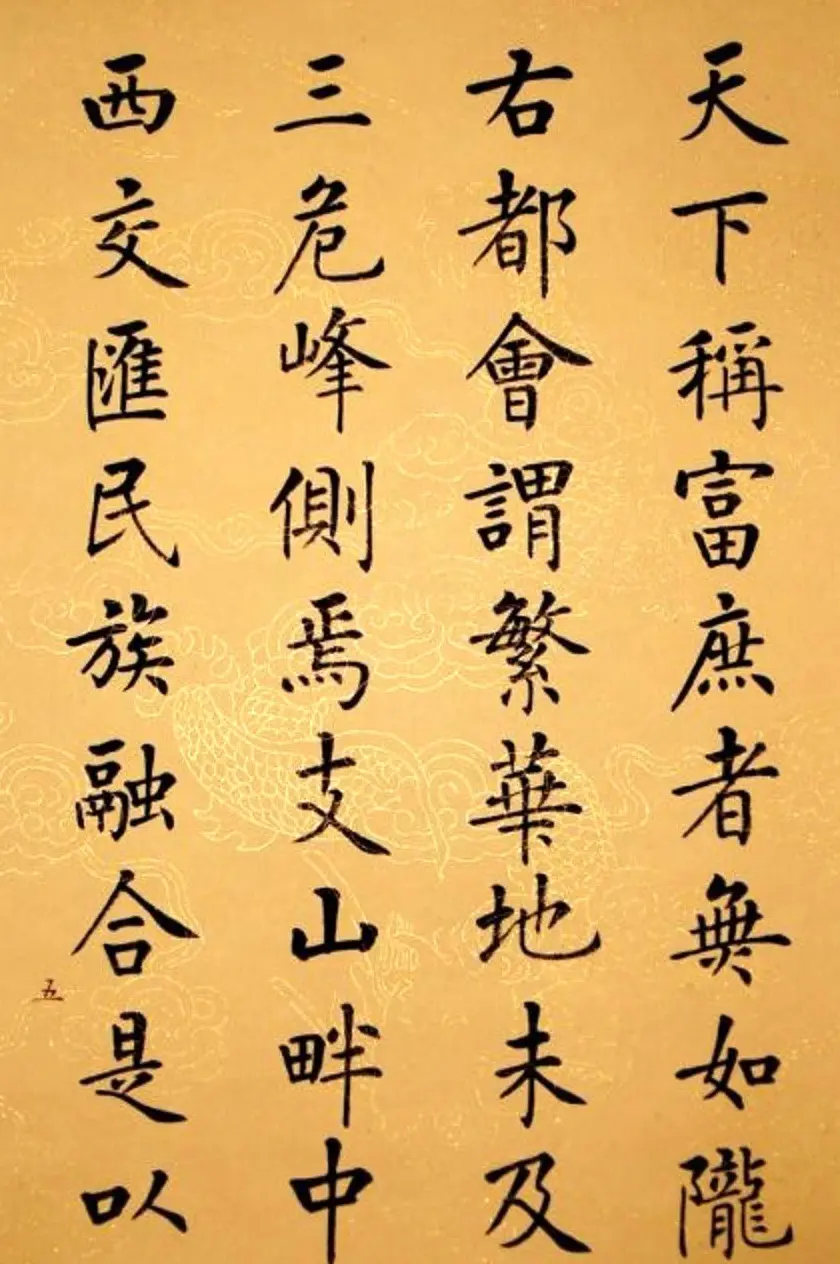 天下稱富庶者無如隴
右都會謂繁華地未及
三危峰側焉支山畔中
西交匯民族融合是以
五